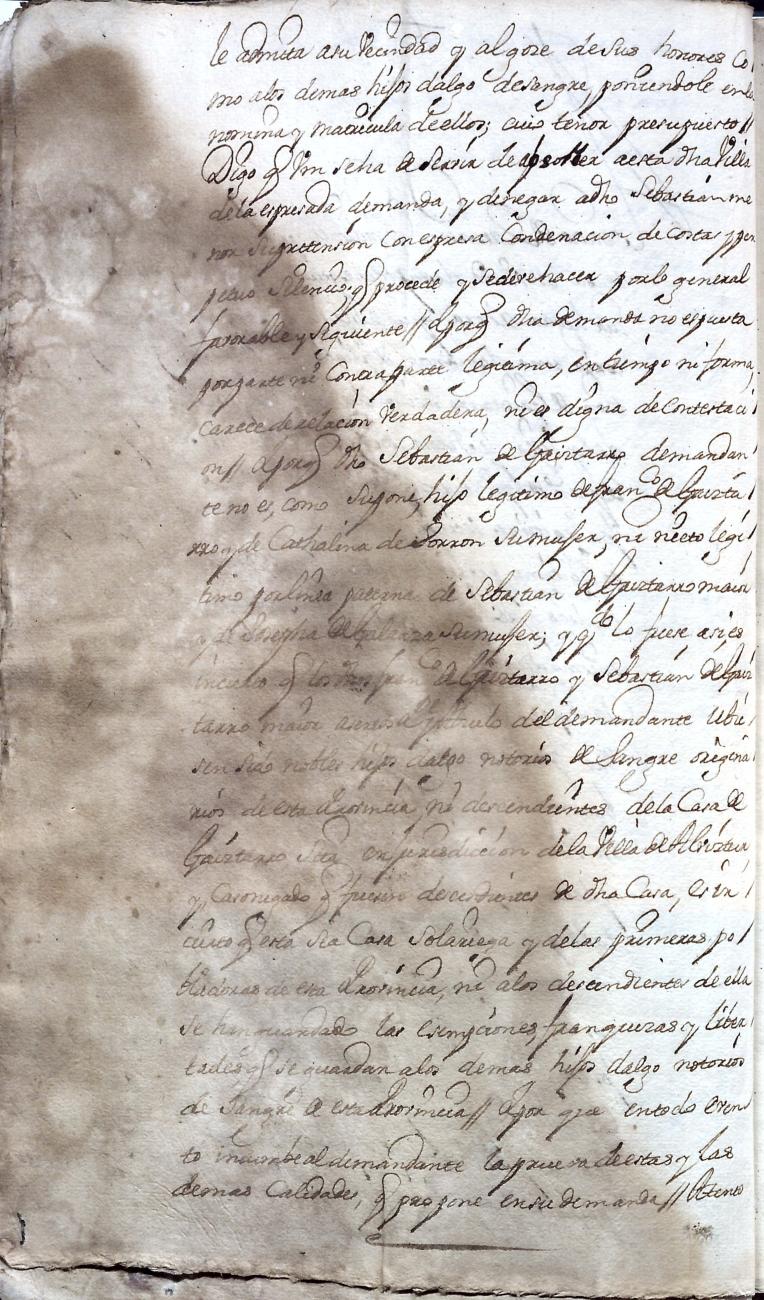 le admita a su Vecindad y al goze de sus honores Co
mo a los demas hijos dalgo de sangre, poniendole en la
nomina y matricula de ellos; cuio tenor presupuesto //
Digo q Vm se ha de servir de absolver a esta dha Villa
de la espresada demanda, y denegar a dho Sebastian me
nor su pretension con espresa Condenacion de costas y per
petuo Silencio; q procede y se deve hacer por lo general
favorable y siguiente // Y porq dha demanda no es puesta
por parte ni Contra parte legitima, en tiempo ni forma,
carece de relacion verdadera, ni es digna de Contestaci
on // Y porq dho Sebastian de Gaiztarro demandan
te no es, como supone, hijo legitimo de franco de Gaizta
rro y de Cathalina de Sorron su muger, ni nieto legi
timo por linea paterna de Sebastian de Gaiztarro maior
y de Josepha de Galarza su muger; y qdo lo fuese, asi es
incierto q los dhos franco de Gaiztarro y Sebastian de Gaiz
tarro maior Abuelo del demandante Ubie
sen sido nobles hijos dalgo notorios de Sangre origina
rios de esta Provincia, ni descendientes de la Casa de
Gaiztarro Sita en jurisdiccion de la Villa de Alviztur
y, Caso negado q fuesen descendientes de dha Casa, es in
cierto q esta sea Casa Solariega y de las primeras po
bladoras de esta Provincia, ni a los descendientes de ella
se han guardado las esempciones, franquezas y liber
tades q se guardan a los demas hijos dalgo notorios
de Sangre de esta Provincia // Y por que en todo even
to incumbe al demandante la prueva de estas y las
demas Calidades, q propone en su demanda // Atento